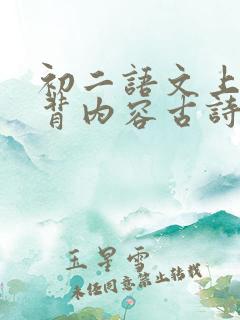 初二語文上
背内容古詩
玉星雪
未经同意禁止转载